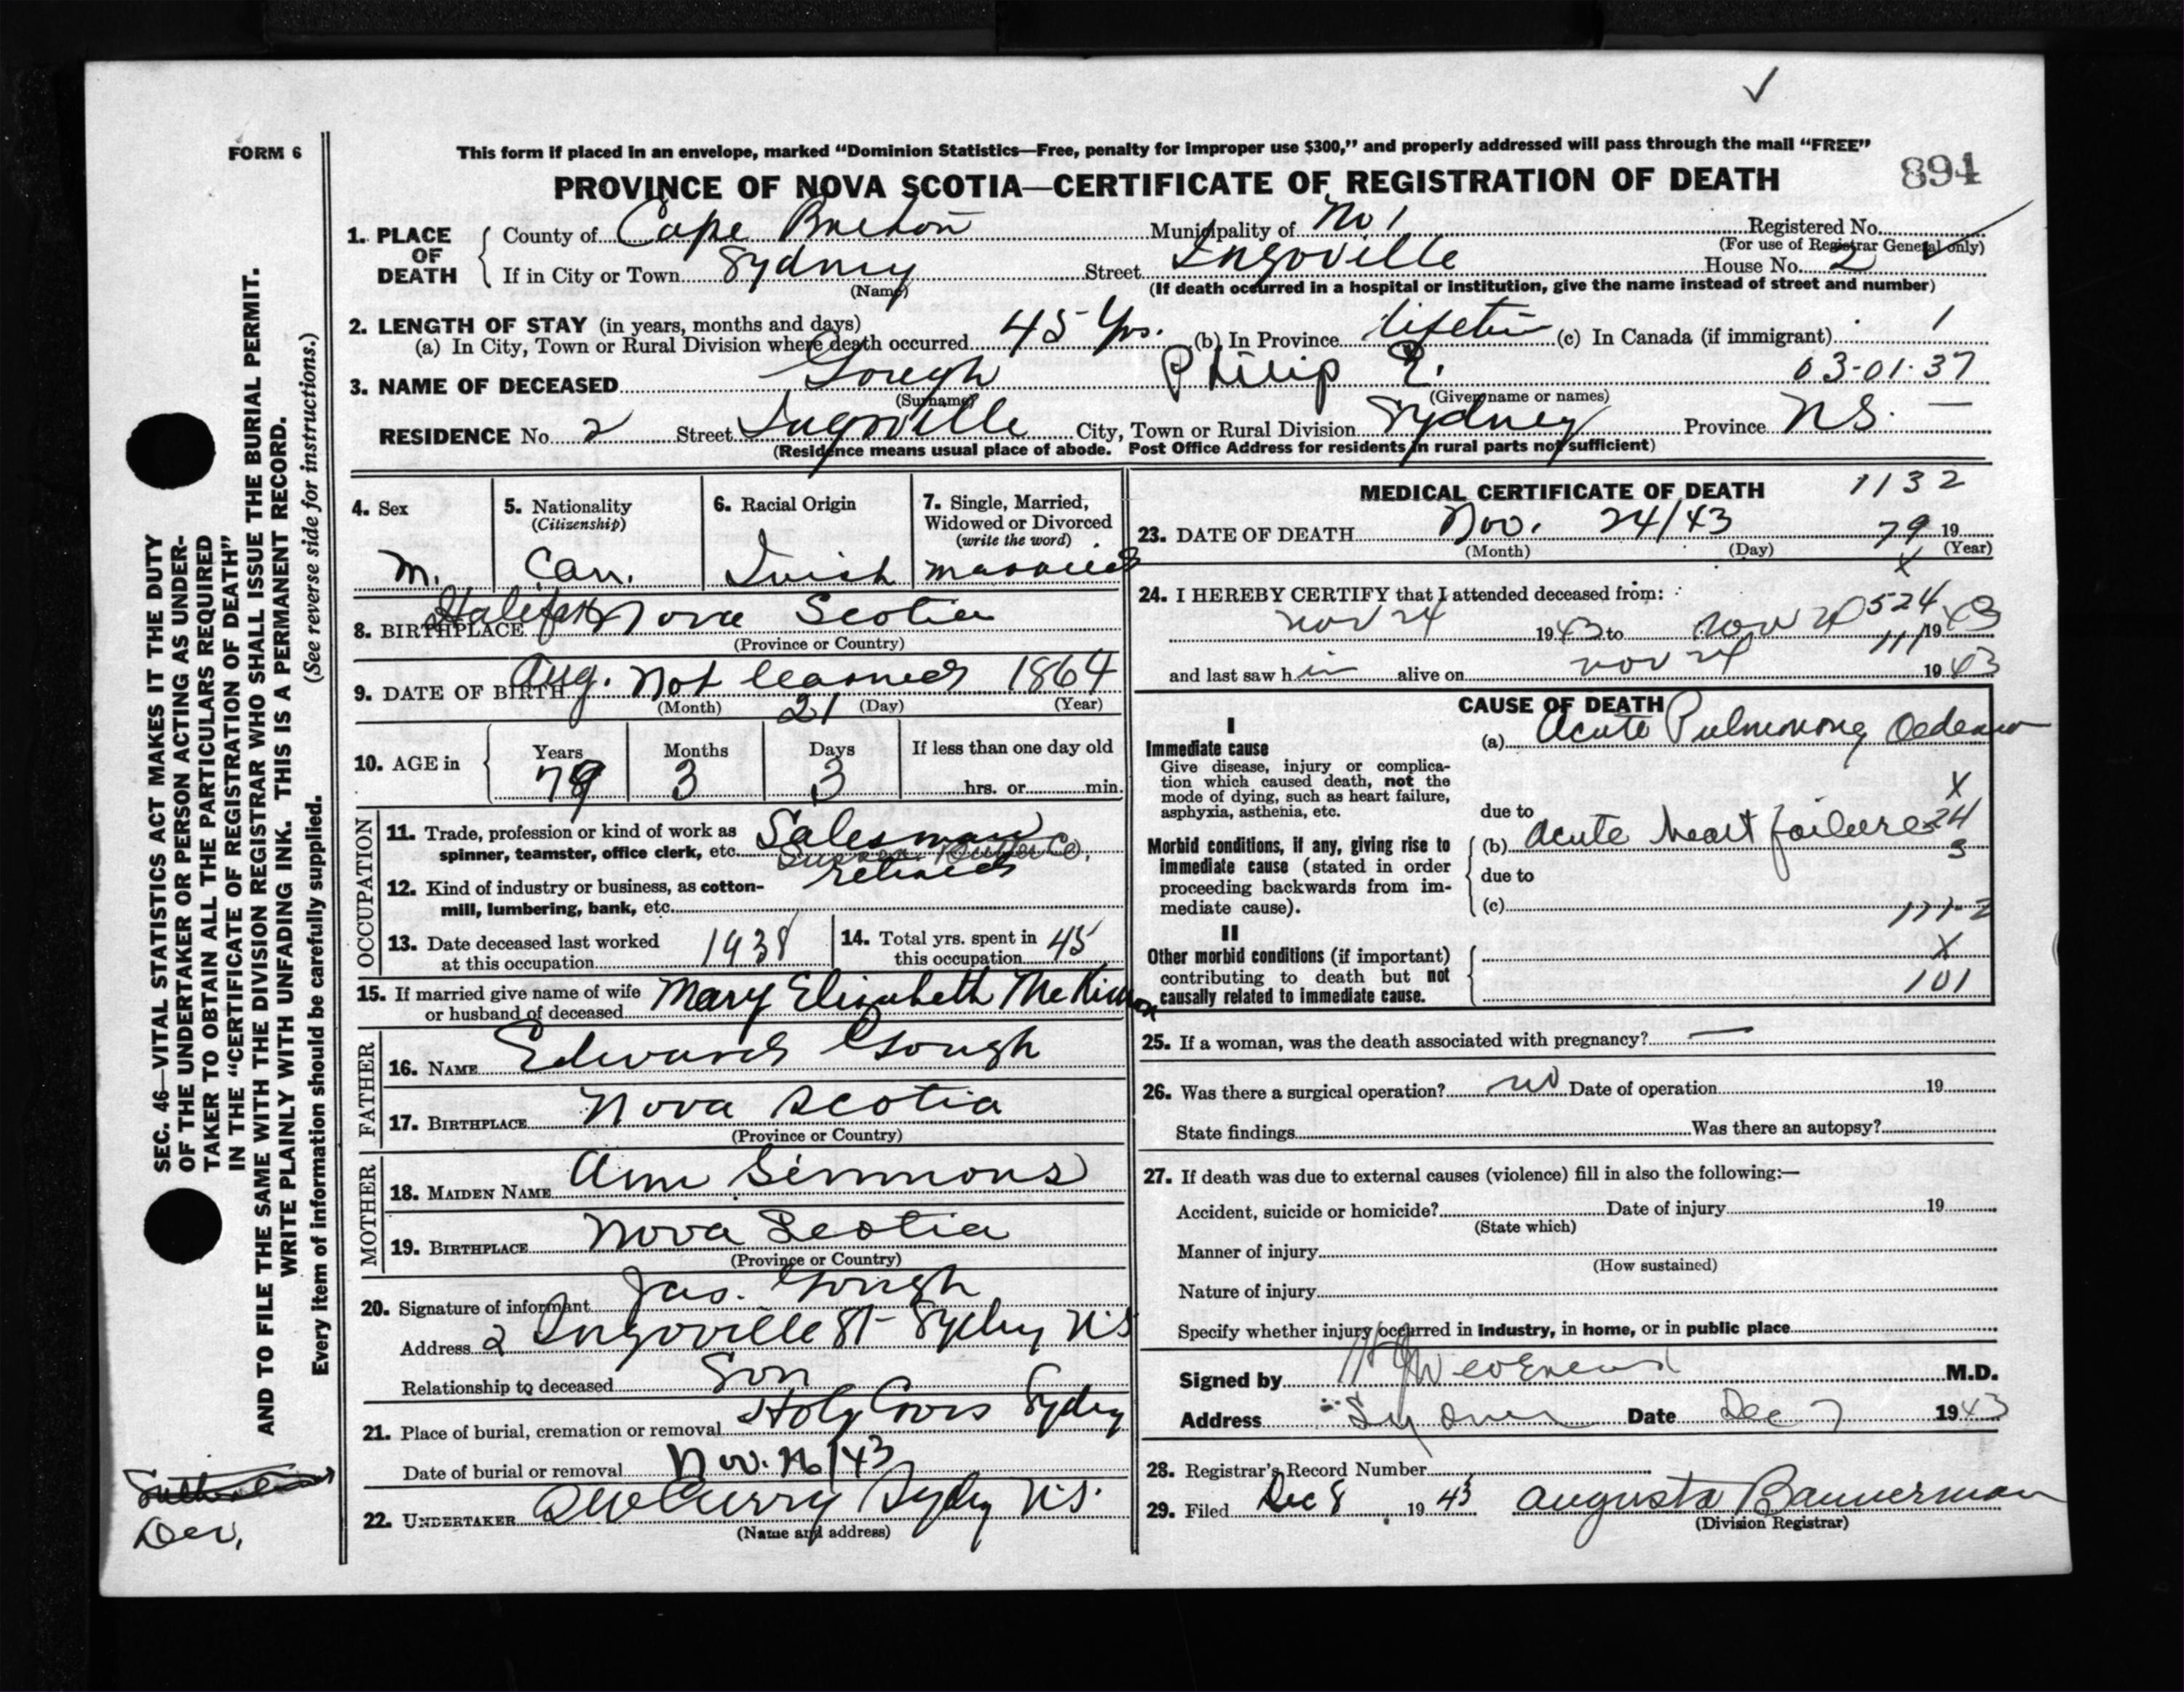 FORM 6
This form if placed in an envelope, marked “Dominion Statistics—Free, penalty for improper use $300,” and properly addressed will pass through the mail “FREE”
PROVINCE OF NOVA SCOTIA—CERTIFICATE OF REGISTRATION OF DEATH 894
1. PLACE OF DEATH { County of Cape Breton Municipality of No 1 Registered No.
(For use of Registrar General only)
If in City or Town Sydney Street Ingoville House No. 2
(Name) (If death occurred in a hospital or institution, give the name instead of street and number)
2. LENGTH OF STAY (in years, months and days)
(a) In City, Town or Rural Division where death occurred 45 Yrs. (b) In Province lifetime (c) In Canada (if immigrant) 1
3. NAME OF DECEASED Gough Philip E. 03-01-37
(Surname) (Given name or names)
RESIDENCE No. 2 Street Ingoville City, Town or Rural Division Sydney Province N.S. —
(Residence means usual place of abode. Post Office Address for residents in rural parts not sufficient)
4. Sex
M.
5. Nationality
(Citizenship)
Can.
6. Racial Origin
Irish
7. Single, Married,
Widowed or Divorced
(write the word)
married
8. BIRTHPLACE Halifax Nova Scotia
(Province or Country)
9. DATE OF BIRTH Aug. Not learned 1864
(Month) 21 (Day) (Year)
10. AGE in { Years Months Days If less than one day old
79 3 3 hrs. or min.
OCCUPATION
11. Trade, profession or kind of work as
spinner, teamster, office clerk, etc. Salesman
12. Kind of industry or business, as cotton-
mill, lumbering, bank, etc. retired
13. Date deceased last worked
at this occupation 1938
14. Total yrs. spent in
this occupation 45
15. If married give name of wife
or husband of deceased Mary Elizabeth McKinnon
FATHER
16. NAME Edward Gough
17. BIRTHPLACE Nova Scotia
(Province or Country)
MOTHER
18. MAIDEN NAME Ann Simmons
19. BIRTHPLACE Nova Scotia
(Province or Country)
20. Signature of informant Jas. Gough
Address 2 Ingoville St Sydney N.S
Relationship to deceased Son
21. Place of burial, cremation or removal Holy Cross Sydney
Date of burial or removal Nov. 26/43
22. UNDERTAKER Sydney N.S.
(Name and address)
MEDICAL CERTIFICATE OF DEATH 1132
23. DATE OF DEATH Nov. 24/43 79 19
(Month) (Day) (Year)
x
24. I HEREBY CERTIFY that I attended deceased from:
Nov 24 1943 to Nov 24 1943
524
111
and last saw him alive on Nov 24 1943
CAUSE OF DEATH
I
Immediate cause
Give disease, injury or complica-
tion which caused death, not the
mode of dying, such as heart failure,
asphyxia, asthenia, etc.
(a) Acute Pulmonary Oedema
x
due to
24
Morbid conditions, if any, giving rise to
immediate cause (stated in order
proceeding backwards from im-
mediate cause).
(b) Acute heart failure
due to
(c)
II
Other morbid conditions (if important)
contributing to death but not
causally related to immediate cause.
x
101
25. If a woman, was the death associated with pregnancy? —
26. Was there a surgical operation? no Date of operation 19
State findings Was there an autopsy?
27. If death was due to external causes (violence) fill in also the following:—
Accident, suicide or homicide? Date of injury 19
(State which)
Manner of injury
(How sustained)
Nature of injury
Specify whether injury occurred in industry, in home, or in public place
Signed by M.D.
Address Sydney Date Dec 7 1943
28. Registrar's Record Number
29. Filed Dec 8 1943 Augusta Bannerman
(Division Registrar)
SEC. 46—VITAL STATISTICS ACT MAKES IT THE DUTY
OF THE UNDERTAKER OR PERSON ACTING AS UNDER-
TAKER TO OBTAIN ALL THE PARTICULARS REQUIRED
IN THE “CERTIFICATE OF REGISTRATION OF DEATH”
AND TO FILE THE SAME WITH THE DIVISION REGISTRAR WHO SHALL ISSUE THE BURIAL PERMIT.
WRITE PLAINLY WITH UNFADING INK. THIS IS A PERMANENT RECORD.
Every item of information should be carefully supplied. (See reverse side for instructions.)